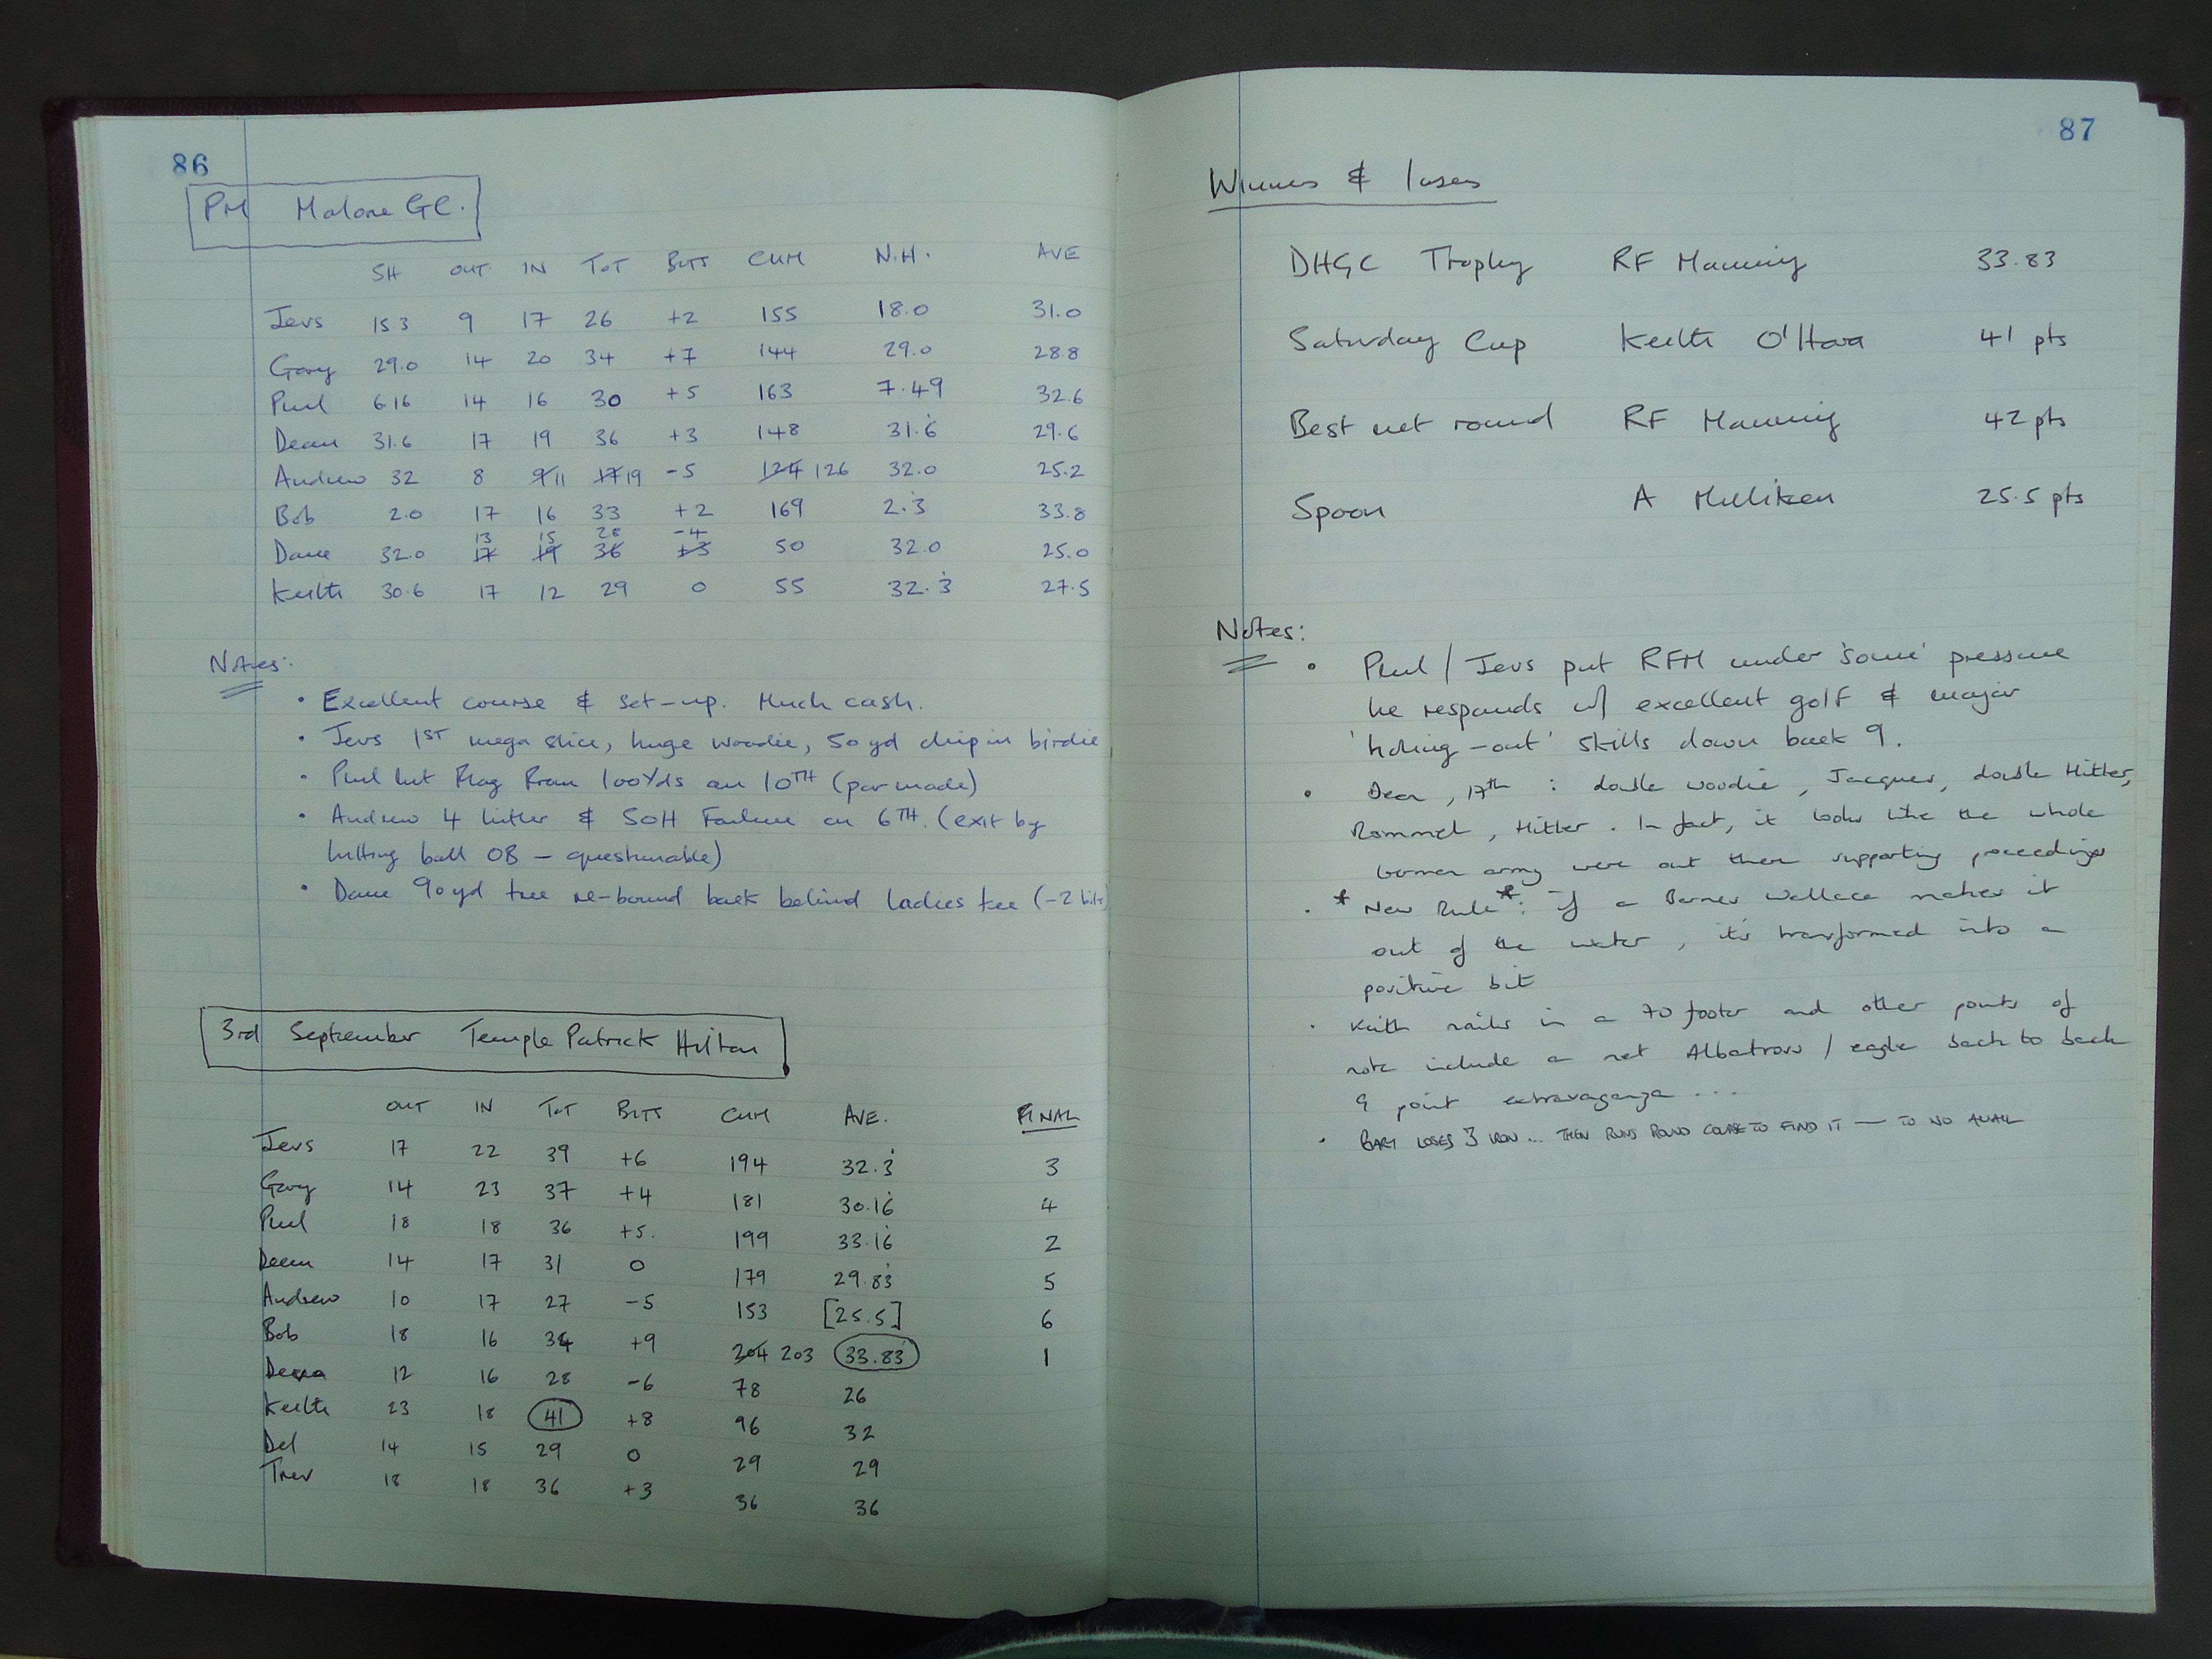 86
PM Malone GC.
SH OUT IN TOT BITS CUM N.H. AVE
Jevs 15.3 9 17 26 +2 155 18.0 31.0
Gary 29.0 14 20 34 +7 144 29.0 28.8
Paul 6.16 14 16 30 +5 163 7.49 32.6
Dean 31.6 17 19 36 +3 148 31.6̇ 29.6
Andrew 32 8 9 11 17 19 -5 124 126 32.0 25.2
Bob 2.0 17 16 33 +2 169 2.3̇ 33.8
13 15 28 -4
Dave 32.0 17 19 36 +3 50 32.0 25.0
Keith 30.6 17 12 29 0 55 32.3̇ 27.5
Notes:
• Excellent course & set-up. Much cash.
• Jevs 1ST mega slice, huge woodie, 50 yd chip in birdie
• Paul hit flag from 100yds on 10TH (par made)
• Andrew 4 hitler & SOH Failure on 6TH. (exit by
hitting ball OB - questionable)
• Dave 90yd tree re-bound back behind ladies tee (-2 bits)
3rd September Temple Patrick Hilton
OUT IN TOT BITS CUM AVE. FINAL
Jevs 17 22 39 +6 194 32.3̇ 3
Gary 14 23 37 +4 181 30.16̇ 4
Paul 18 18 36 +5. 199 33.16̇ 2
Dean 14 17 31 0 179 29.83̇ 5
Andrew 10 17 27 -5 153 [25.5] 6
Bob 18 16 34 +9 204 203 33.83̇ 1
12 16 28 -6 78 26
Keith 23 18 41 +8 96 32
Del 14 15 29 0 29 29
Trev 18 18 36 +3 36 36
87
Winners & losers
DHGC Trophy RF Manning 33.83
Saturday Cup Keith O'Hara 41 pts
Best net round RF Manning 42 pts
Spoon A Milliken 25.5 pts
Notes:
• Paul / Jevs put RFM under 'some' pressure
he responds w/ excellent golf & major
'holing-out' skills down back 9.
• Dean, 17th : double woodie, Jacques, double Hitler,
Rommel, Hitler. In fact, it looks like the whole
German army were out there supporting proceedings
• * New Rule *: if a Barnes Wallace makes it
out of the water, it's transformed into a
positive bit
• Keith nails in a 70 footer and other points of
note include a net Albatross / eagle back to back
9 point extravaganza ...
• BART LOSES 3 IRON ... THEN RUNS ROUND COURSE TO FIND IT — TO NO AVAIL